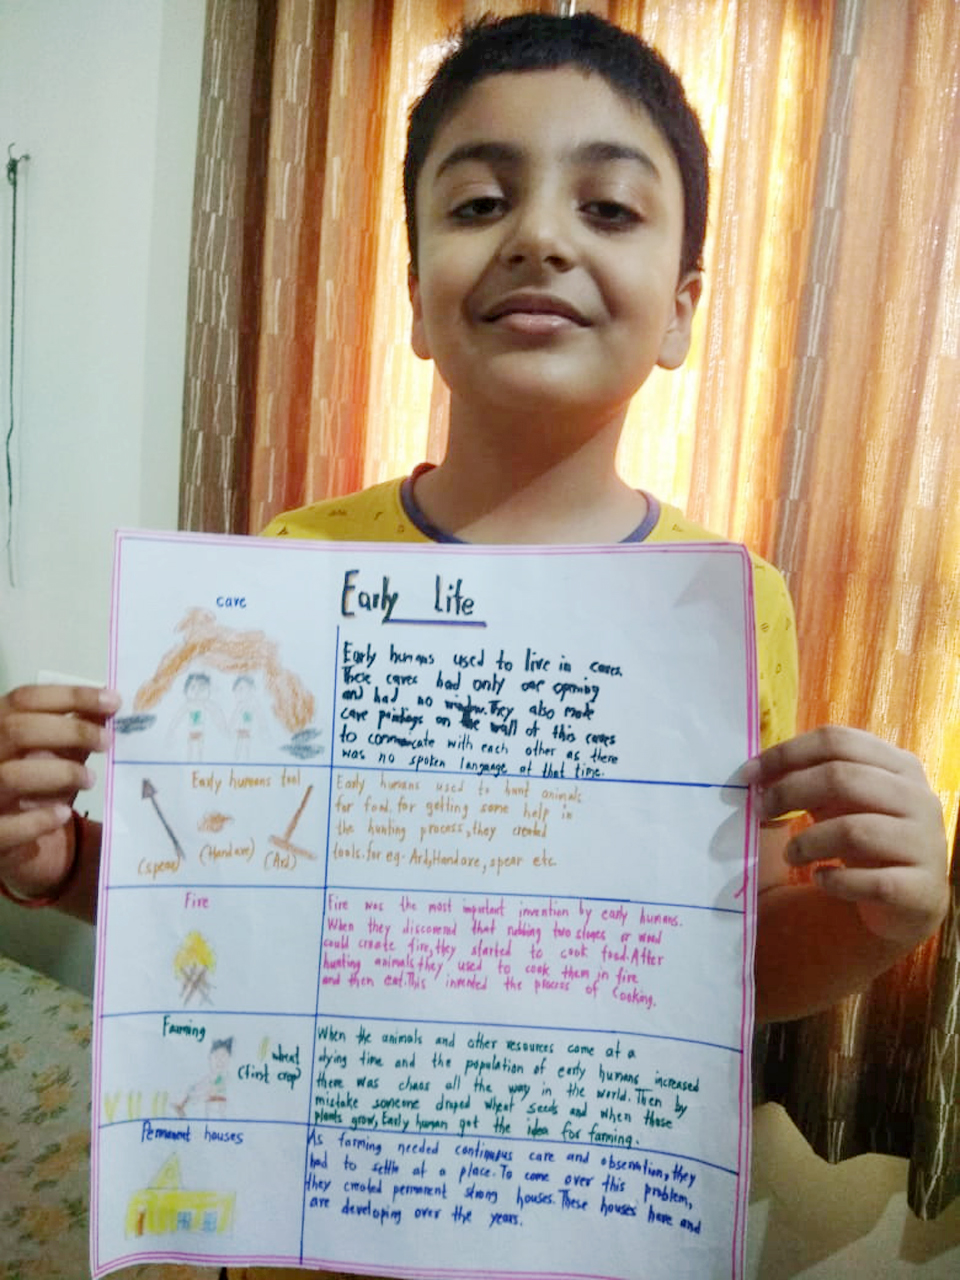 Early Life
cave
Early humans used to live in caves.
These caves had only one opening
and had no window. They also made
cave paintings on the wall of this caves
to commucate with each other as there
was no spoken language at that time.
Early humans tool
(spear)
(Handaxe)
(Ard)
Early humans used to hunt animals
for food. for getting some help in
the hunting process, they created
tools. for eg- Ard, Handaxe, spear etc.
Fire
Fire was the most important invention by early humans.
When they discovered that rubbing two stones or wood
could create fire, they started to cook food. After
hunting animals, they used to cook them in fire
and then eat. This invented the process of Cooking.
Farming
wheat
(first crop)
When the animals and other resources came at a
dying time and the population of early humans increased
there was chaos all the way in the world. Then by
mistake someone droped wheat seeds and when those
plants grow, Early human got the idea for farming.
Permanent houses
As farming needed continuous care and observation, they
had to settle at a place. To come over this problem,
they created permanent strong houses. These houses have and
are developing over the years.